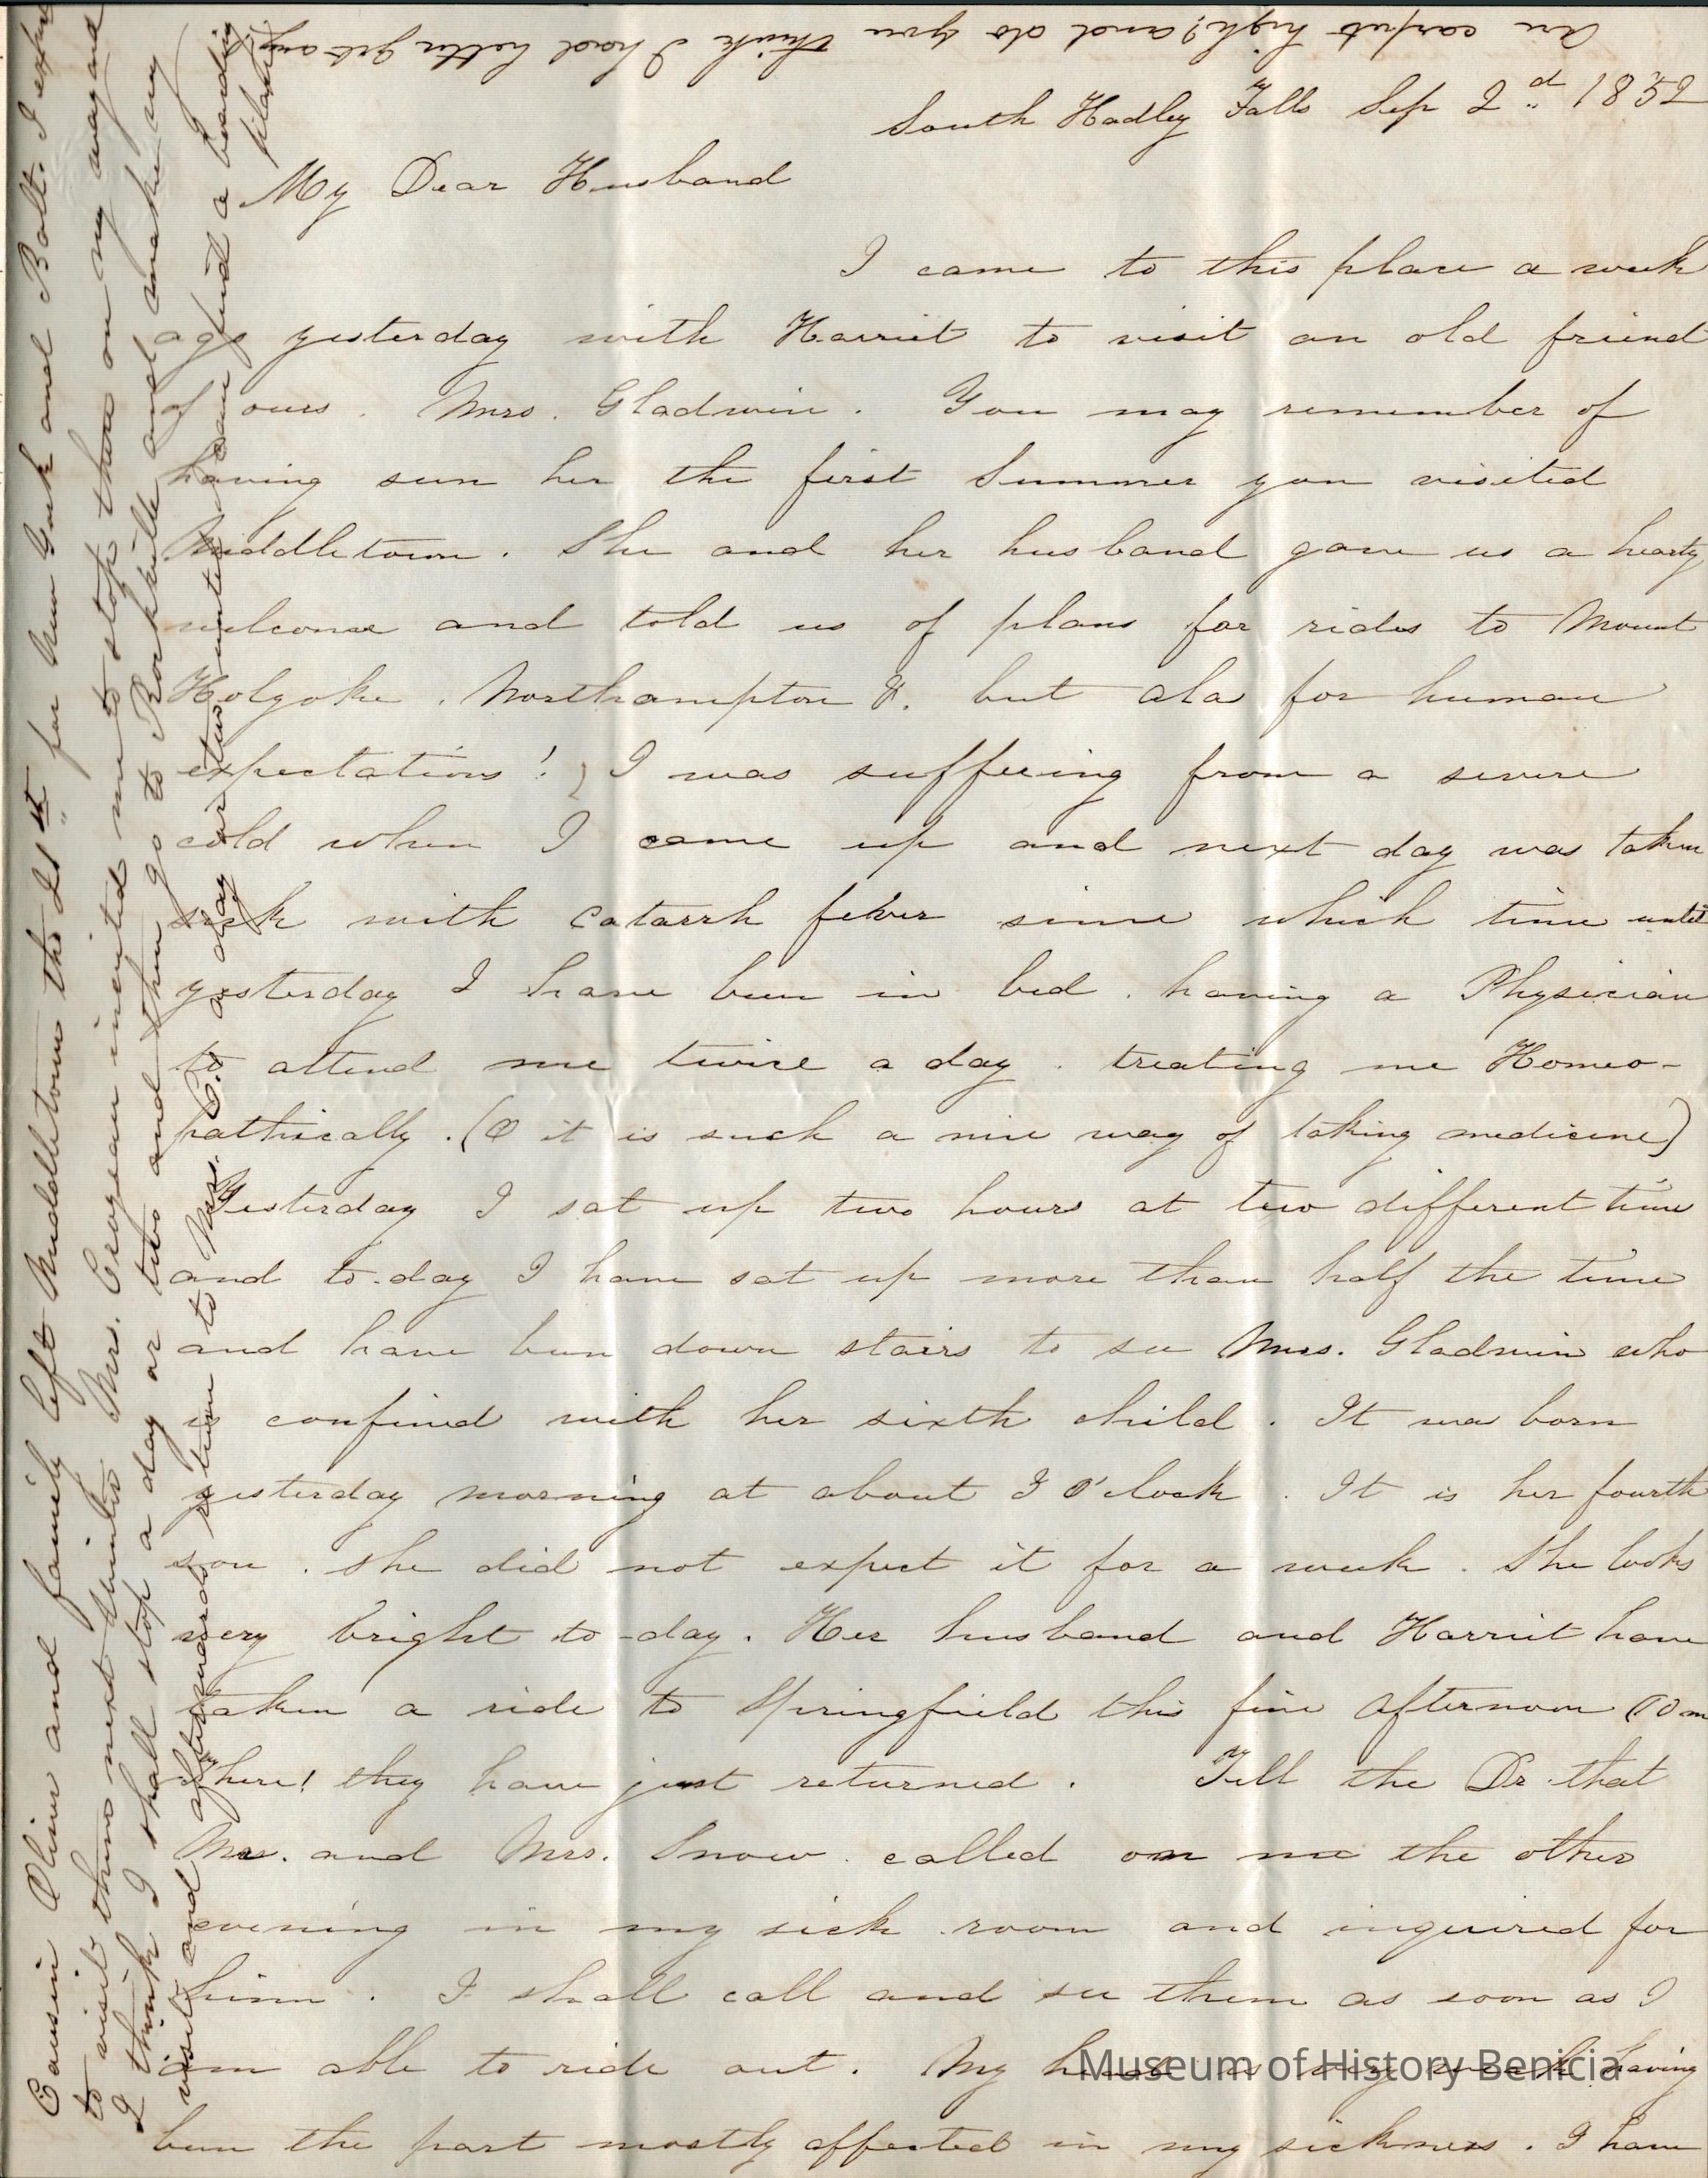 are carpets high? and do you think I had better get any
South Hadley Falls Sep 2d 1852
My Dear Husband
I came to this place a week
ago yesterday with Harriet to visit an old friend
of ours. Mrs. Gladwin. You may remember of
having seen her the first Summer you visited
Middletown. She and her husband gave us a hearty
welcome and told us of plans for rides to Mount
Holyoke, Northampton &. but alas for human
expectations! I was suffering from a severe
cold when I came up and next day was taken
sick with catarrh fever since which time until
yesterday I have been in bed. having a Physician
to attend me twice a day. treating me Homeo-
pathically. (O it is such a nice way of taking medicine)
Yesterday I sat up two hours at two different time
and to-day I have sat up more than half the time
and have been down stairs to see Mrs. Gladwin who
is confined with her sixth child. It was born
yesterday morning at about I o'clock. It is her fourth
son. She did not expect it for a week. She looks
very bright to-day. Her husband and Harriet have
taken a ride to Springfield this fine afternoon
There! they have just returned. Tell the Dr. that
Mr. and Mrs. Snow called on me the other
evening in my sick room and inquired for
him. I shall call and see them as soon as I
am able to ride out. My head is very weak having
been the part mostly affected in my sickness. I have
Cousin Oliver and family left Middletown the for New York and Balt. I expect
to visit them next Winter. Mr. Crogean invited me to stop there on my way and
I think I shall stop a day or two and then go to Rockville and make my
visit and afterwards return to Mrs. C. a day or two until I can find a boarding
place
Museum of History Benicia